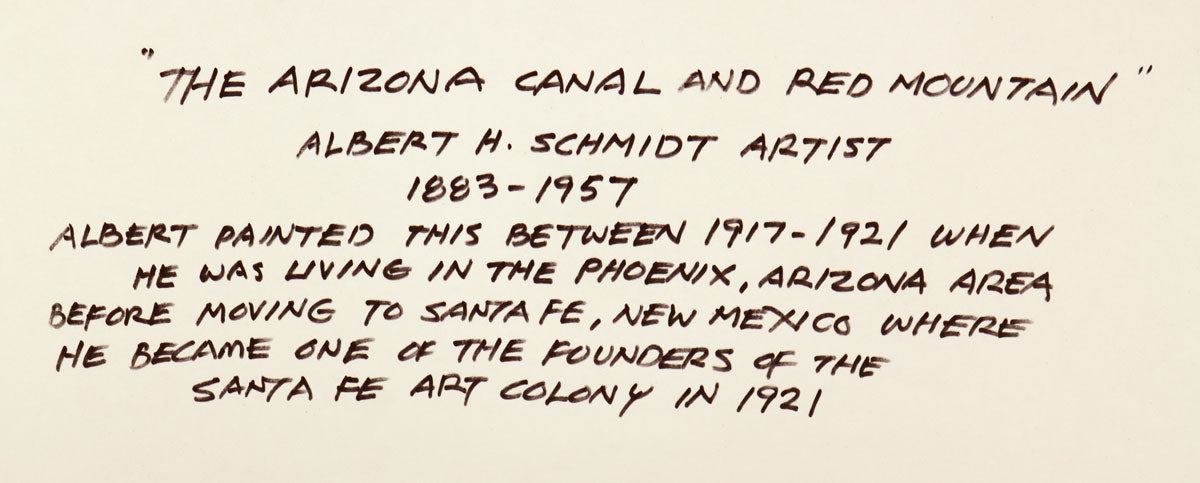 "THE ARIZONA CANAL AND RED MOUNTAIN"
ALBERT H. SCHMIDT ARTIST
1883-1957
ALBERT PAINTED THIS BETWEEN 1917-1921 WHEN
HE WAS LIVING IN THE PHOENIX, ARIZONA AREA
BEFORE MOVING TO SANTA FE, NEW MEXICO WHERE
HE BECAME ONE OF THE FOUNDERS OF THE
SANTA FE ART COLONY IN 1921